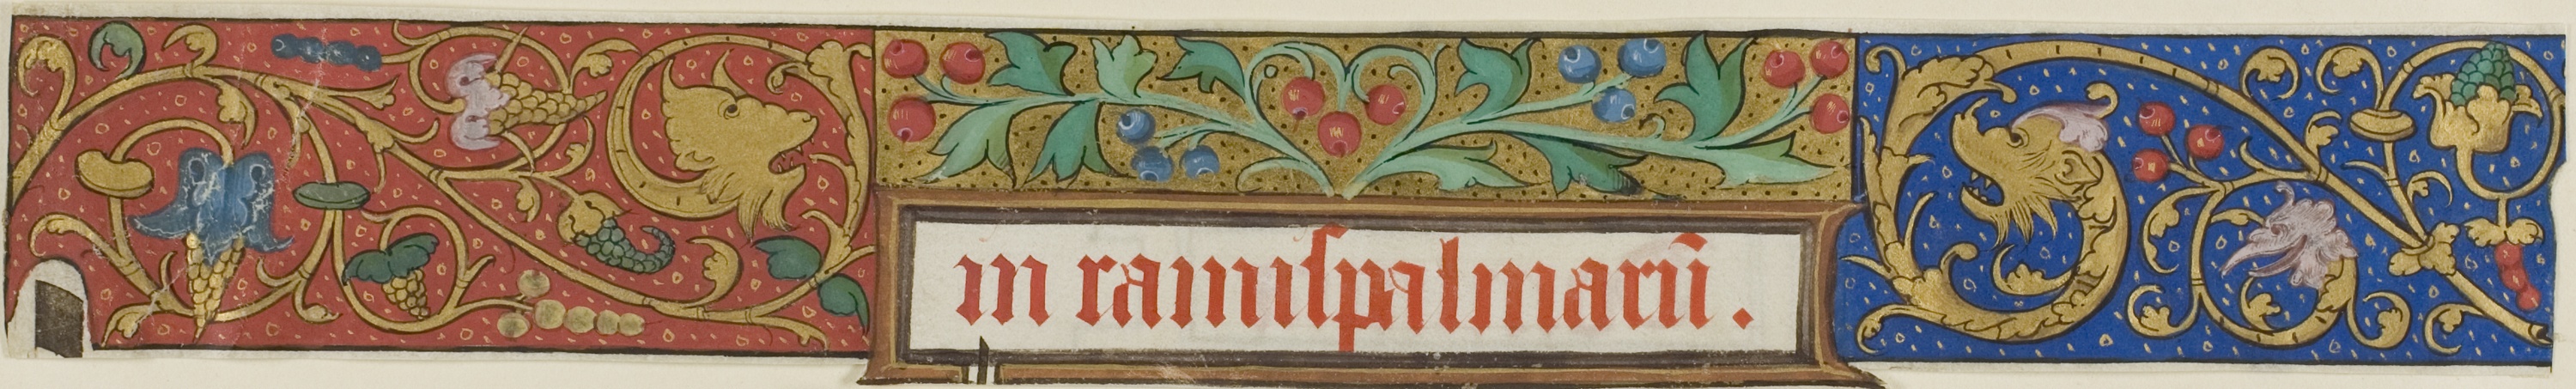 in ramiſpalmarū.